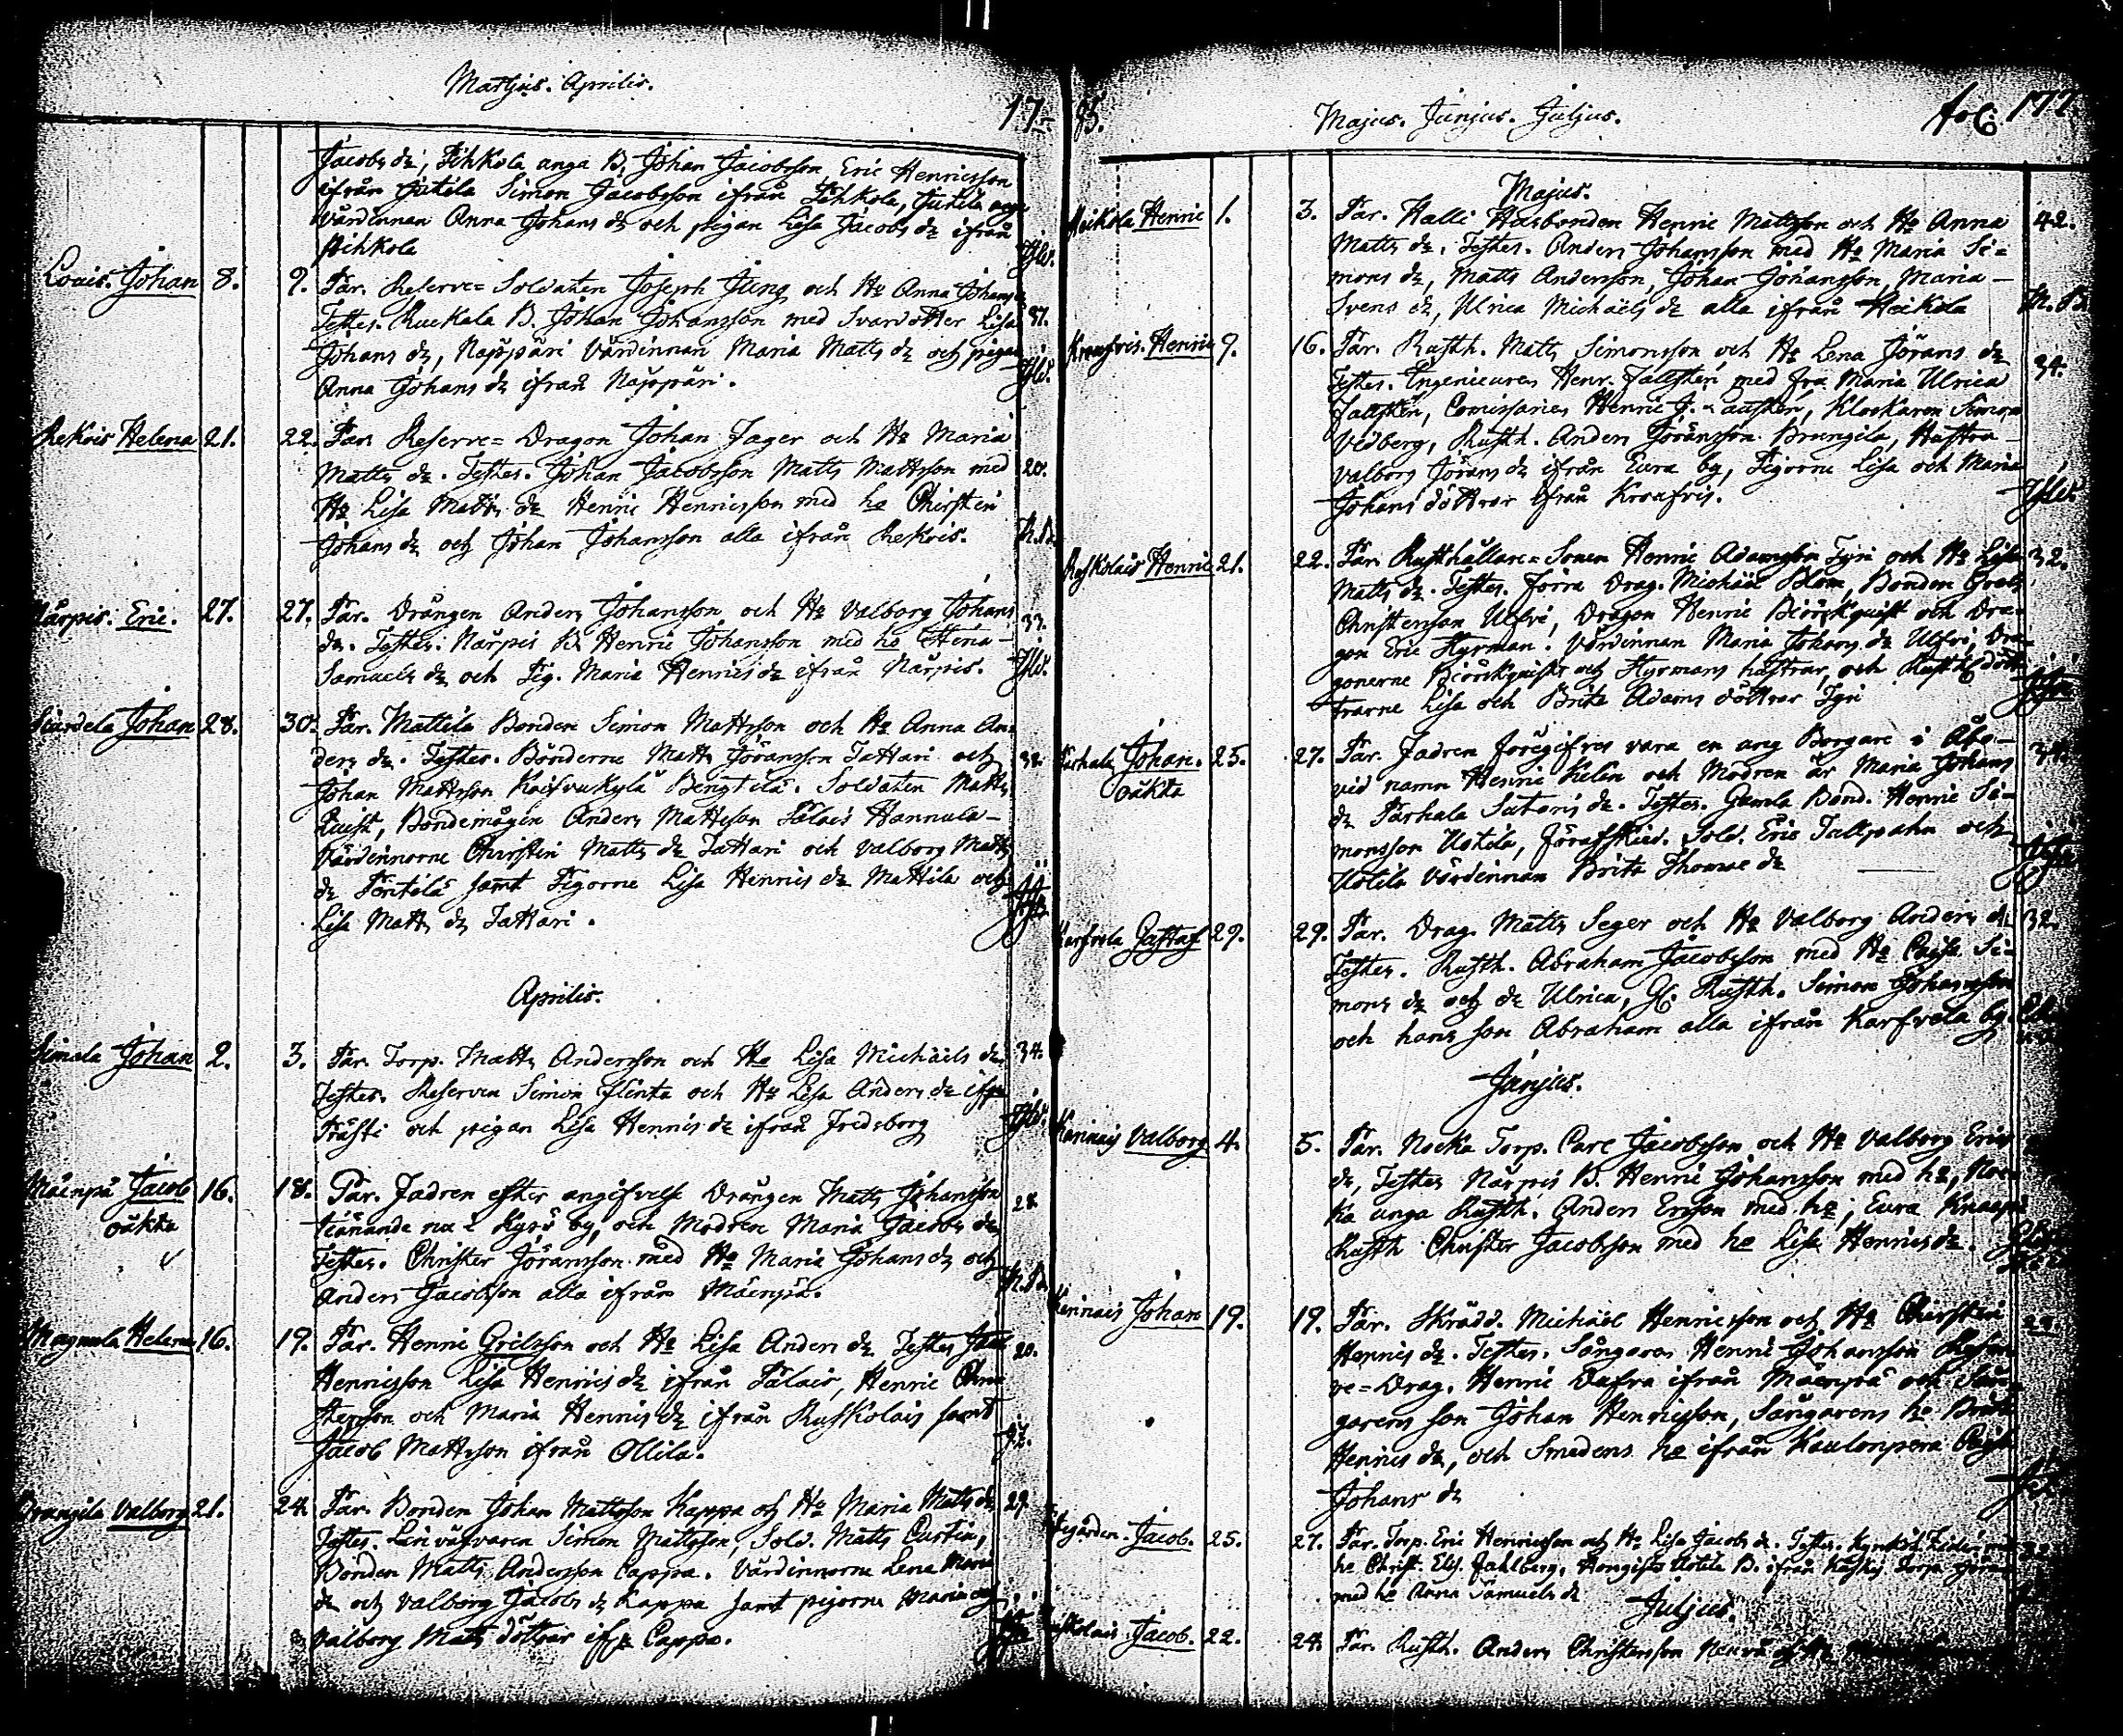 Martjus. Aprilis.
17
Jacobs dr, Pihkola unga B. Johan Jacobsson, Eric Henricsson
ifrån Jutila Simon Jacobsson ifrån Pihkola, Jutila unga
värdinnan Anna Johans dr och pigan Lisa Jacobs dr ifrån
Pihkola
Louis. Johan 8. 9. Par. Reserve=Soldaten Joseph Jung och Ho Anna Johans
Testes. Ruckala B. Johan Johansson med Svärdotter Lisa 37.
Johans dr, Näppäri Värdinnan Maria Matts dr och pigan
Anna Johans dr ifrån Näppäri.
Rekois Helena 21. 22. Par. Reserve=Dragon Johan Jager och Ho Maria
Matts dr. Testes. Johan Jacobsson Matts Mattsson med 20.
Ho Lisa Matts dr Henric Henricsson med ho Chirstin
Johans dr och Johan Johansson alla ifrån Rekois.
Närpis. Eric. 27. 27. Par. Drängen Anders Johansson och Ho Valborg Johans 33.
dr. Testes. Närpis B. Henric Johansson med ho Stina
Samuels dr och Pig. Maria Henrics dr ifrån Närpis.
Johan 28. 30. Par. Mattila Bonden Simon Mattsson och Ho Anna An-
ders dr. Testes. Bönderne Matts Jöransson Tattari och 32.
Johan Mattsson Kaifvukylä Bengtilä. Soldaten Matts
Quist, Bondemågen Anders Mattsson Pälais Hannula
Värdinnorne Chirstin Matts dr Tattari och Valborg Matts
dr Pentilä samt Pigorne Lisa Henrics dr Mattila och
Lisa Matts dr Tattari.
Aprilis.
Simala Johan 2. 3. Par. Torp. Matts Andersson och Ho Lisa Michaels dr 34.
Testes. Reserven Simon Flinta och Ho Lisa Anders dr ifrn
och pigan Lisa Henrics dr ifrån Fredsborg
Mäenpä Jacob 16. 18. Par. Fadren efter angifvelse Drängen Matts Johansson 28.
oäkta
tienande nu i Kyrö by, och Modren Maria Jacobs dr
Testes. Christer Jöransson med Ho Maria Johans dr och
Anders Jacobsson alla ifrån Mäenpä.
Magnula Helena 16. 19. Par. Henric Grelsson och Ho Lisa Anders dr Testes 20.
Henricsson Lisa Henrics dr ifrån Pälais, Henric Chri-
stersson och Maria Henrics dr ifrån Ruskolais samt
Jacob Mattsson ifrån Ollila.
Valborg 21. 24. Par. Bonden Johan Mattsson Kappa och Ho Maria Matts dr 29.
Testes. Linväfvaren Simon Mattsson, Sold. Matts Curtin,
Bonden Matts Andersson Cappa. Värdinnorne Lena Matts
dr och Valborg Jacobs dr Kappa samt pigorne Maria och
Valborg Matts döttrar ifrn Cappa.
95.
Majus. Junjus. Juljus.
Fol. 177.
Majus.
Heikola Henric 1. 3. Par. Halli Husbonden Henric Mattsson och Ho Anna 42.
Matts dr. Testes. Anders Johansson med Ho Maria Si=
mons dr, Matts Andersson, Johan Johansson, Maria
Svens dr, Ulrica Michaels dr alla ifrån Heikola
Henric 9. 16. Par. Rusth. Matts Simonsson och Ho Lena Jörans dr 34.
Testes. Engenieuren Henr. Fattstén med fru Maria Ulrica
Comissarien Henric Klockaren Simon
Vidberg, Rusth. Anders Jöransson Brungila, Hustru
Valborg Jörans dr ifrån Eura by, Pigorne Lisa och Maria
Johans döttrar ifrån Kraufvis.
Ruskolais Henric 21. 22. Par. Rusthållare=Sonen Henric Adamsson Tyri och Ho Lisa 32.
Matts dr. Testes. Förra Drag. Michael Blom, Bonden
Christersson Ulfvi, Dragon Henric Biörkquist och Dra-
gon Eric Hyrman. Värdinnan Maria Johans dr Ulfvi, Dra-
gonerne Biörkquists och Hyrmans hustrur, och Rusth. dött-
rarne Lisa och Brita Adams döttrar Tyri
Parhala Johan. 25. 27. Par. Fadren föregifves vara en ung Borgare i Åbo
oäkta
vid namn Henric Kelin och Modren är Maria Johans
dr Parhala Sutoris dr. Testes. Gamla Bond. Henric Si-
monsson Uotila, Förafskied. Sold. Eric Tallpahn och
Uotila Värdinnan Brita Thomae dr
Karfvela Gustaf 29. 29. Par. Drag. Matts Seger och Ho Valborg Anders dr 32.
Testes. Rusth. Abraham Jacobsson med Ho Si-
mons dr och dr Ulrica, Gl. Rusth. Simon Johansson
och hans son Abraham alla ifrån Karfvela by.
Junjus.
Karinais Valborg 4. 5. Par. Nocka Torp. Carl Jacobsson och Ho Valborg Erics
dr, Testes Närpis B. Henric Johansson med ho, Noc-
ka unga Rusth. Anders Ersson med ho; Eura Knaapi
Rusth Christer Jacobsson med ho Lisa Henrics dr.
Karinais Johan 19. 19. Par. Skrädd. Michael Henricsson och Ho Chirstin
Henrics dr. Testes. Sångaren Henric Johansson Reser-
ve=Drag. Henric Dufva ifrån Mäenpä och Sån-
garens son Johan Henricsson, Sångarens ho Brita
Henrics dr, och Smedens ho ifrån Kaulanpera
Johans dr
Jacob. 25. 27. Par. Torp. Eric Henricsson och Ho Lisa Jacobs dr. Testes.
ho Christ. Els. Fahlberg, Uotila B. ifrån Torp.
med ho Anna Samuels dr
Juljus.
Jacob. 22. 24. Par. Rusth. Anders Christersson